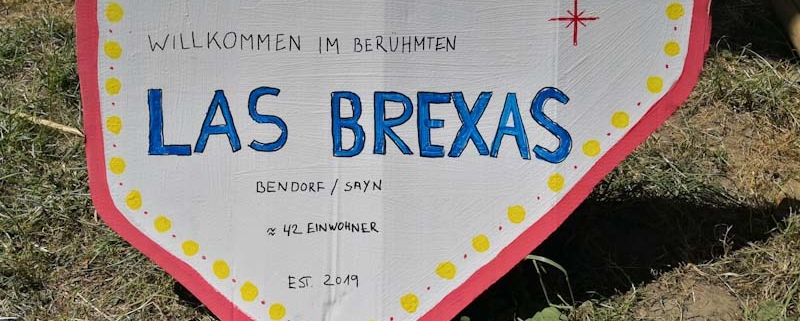 WILLKOMMEN IM BERÜHMTEN
LAS BREXAS
BENDORF / SAYN
≈ 42 EINWOHNER
EST. 2019